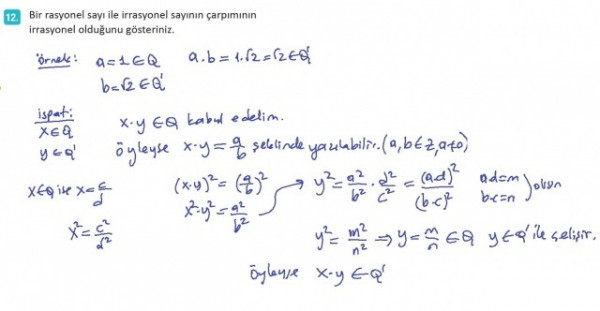 12. Bir rasyonel sayı ile irrasyonel sayının çarpımının
irrasyonel olduğunu gösteriniz.
örnek: a=1∈Q a.b=1.√2=√2∈Q'
b=√2∈Q'
ispat:
x∈Q x.y∈Q kabul edelim.
y∈Q' öyleyse x.y=a/b şeklinde yazılabilir.(a,b∈Z,a≠0)
x∈Q ise x=c/d (x.y)²=(a/b)² y²=a²/b².d²/c²=(ad)²/(b.c)² ad=m b.c=n olsun
x²=c²/d² x².y²=a²/b²
y²=m²/n² ⇒ y=m/n∈Q y∈Q' ile çelişir.
öyleyse x.y∈Q'